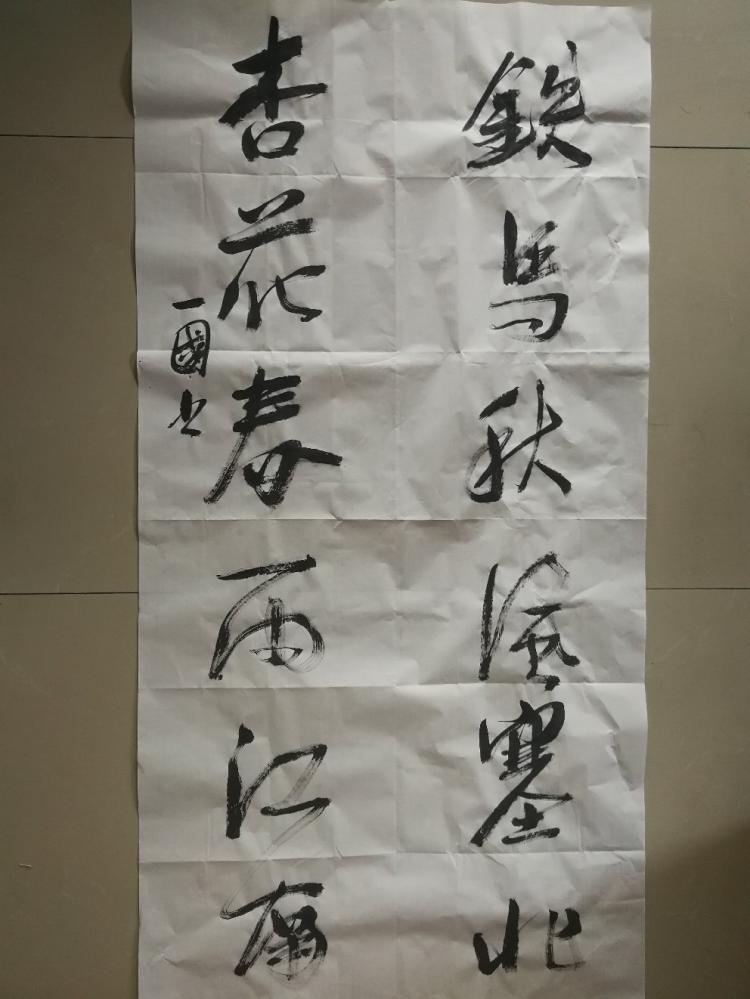 鉄馬秋風塞北
杏花春雨江南
一國书